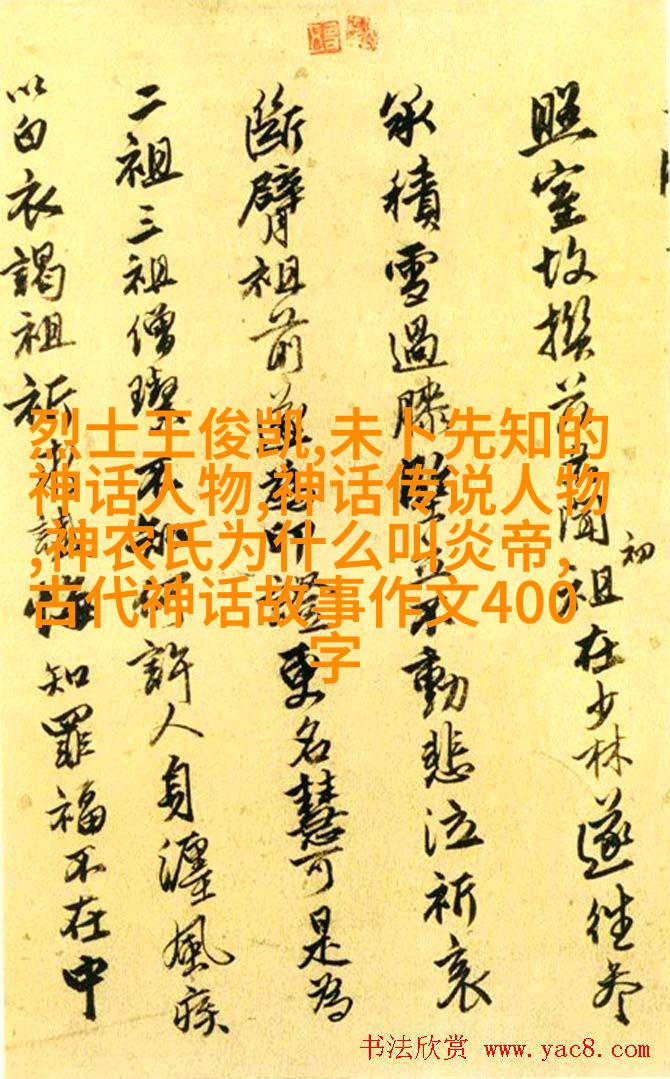 烈士王俊凯,未卜先知的
神话人物,神话传说人物
,神农氏为什么叫炎帝,
古代神话故事作文400
字
照室故撰聞初祖在少林遂往參
承積雪過膝立不動悲泣祈哀
斷臂祖前印證更名慧可是為
二祖三祖僧璨不知何許人身纏風疾
以白衣謁祖祈知罪福不在中
书法欣赏 www.yac8.com